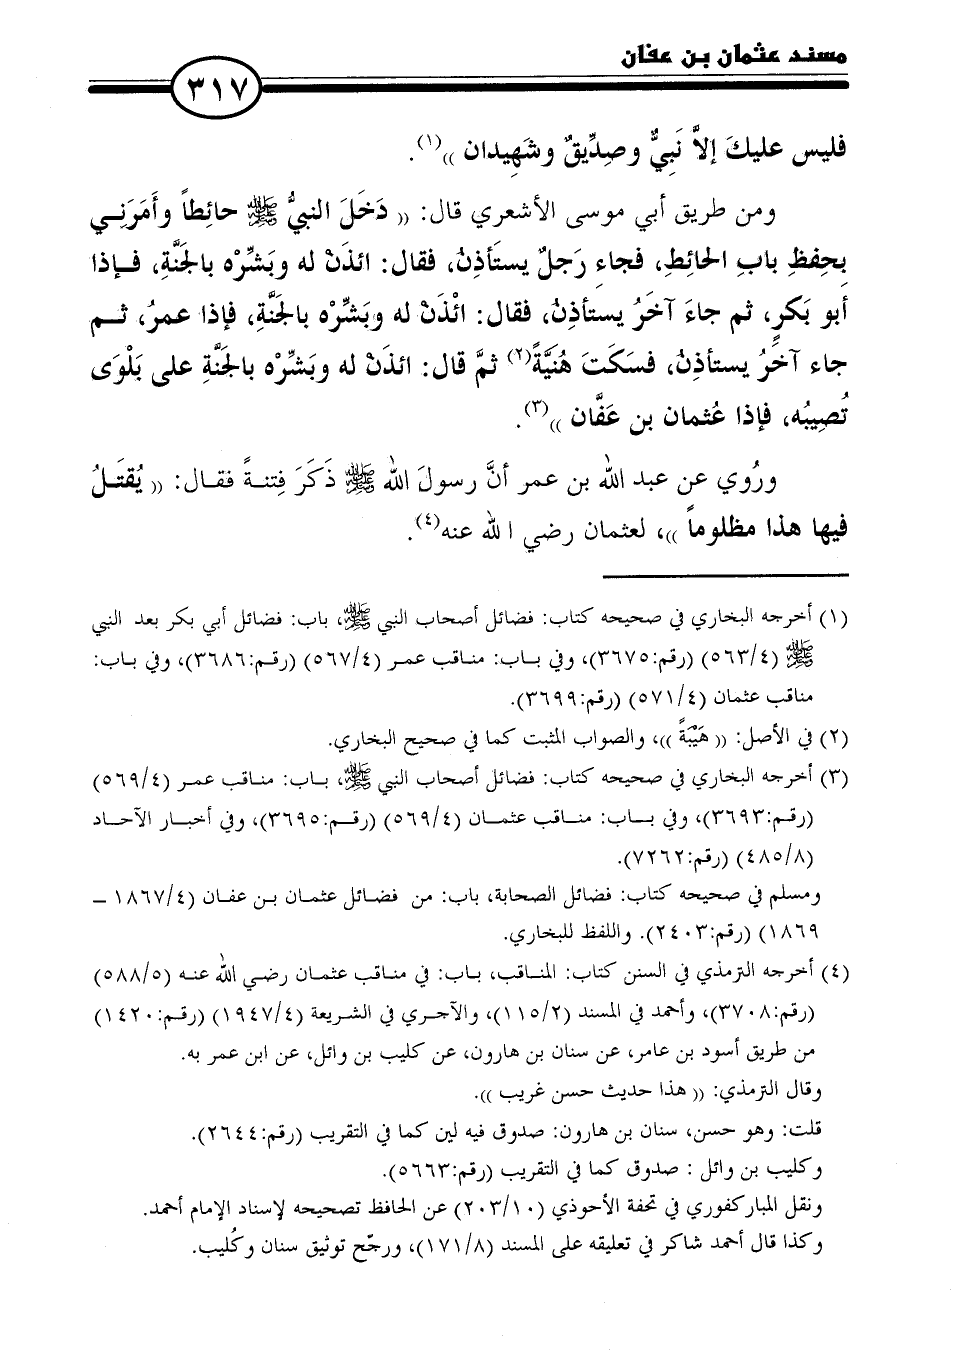 مسند عثمان بن عفان
٣١٧
فليس عليكَ إلاَّ نَبِيٌّ وصِدِّيقٌ وشَهِيدان »(١).
ومن طريق أبي موسى الأشعري قال: « دَخَلَ النبيُّ ﷺ حائِطاً وأَمَرَنِي
بِحفظِ بابِ الحائِطِ، فجاءِ رَجلٌ يستَأذِنُ، فقال: ائذَنْ له وبَشِّرْه بالجَنَّةِ، فإذا
أبو بَكرٍ، ثم جاءَ آخَرُ يستأذِنُ، فقال: ائْذَنْ له وبَشِّرْه بالجَنَّةِ، فإذا عمرُ، ثم
جاء آخَرُ يستأذِنُ، فسَكَتَ هُنَيَّةً(٢) ثمَّ قال: ائذَنْ له وبَشِّرْه بالجَنَّةِ على بَلْوَى
تُصِيبُه، فإذا عُثمان بن عَفَّان »(٣).
ورُوي عن عبد الله بن عمر أنَّ رسولَ الله ﷺ ذَكَرَ فِتنةً فقال: « يُقتَلُ
فيها هذا مظلوماً »، لعثمان رضي الله عنه(٤).
(١) أخرجه البخاري في صحيحه كتاب: فضائل أصحاب النبي ﷺ، باب: فضائل أبي بكر بعد النبي
ﷺ (٥٦٣/٤) (رقم:٣٦٧٥)، وفي باب: مناقب عمر (٥٦٧/٤) (رقم:٣٦٨٦)، وفي باب:
مناقب عثمان (٥٧١/٤) (رقم:٣٦٩٩).
(٢) في الأصل: « هَيْبَةً »، والصواب المثبت كما في صحيح البخاري.
(٣) أخرجه البخاري في صحيحه كتاب: فضائل أصحاب النبي ﷺ، باب: مناقب عمر (٥٦٩/٤)
(رقم:٣٦٩٣)، وفي باب: مناقب عثمان (٥٦٩/٤) (رقم:٣٦٩٥)، وفي أخبار الآحاد
(٤٨٥/٨) (رقم:٧٢٦٢).
ومسلم في صحيحه كتاب: فضائل الصحابة، باب: من فضائل عثمان بن عفان (١٨٦٧/٤ ــ
١٨٦٩) (رقم:٢٤٠٣). واللفظ للبخاري.
(٤) أخرجه الترمذي في السنن كتاب: المناقب، باب: في مناقب عثمان رضي الله عنه (٥٨٨/٥)
(رقم:٣٧٠٨)، وأحمد في المسند (١١٥/٢)، والآجري في الشريعة (١٩٤٧/٤) (رقم:١٤٢٠)
من طريق أسود بن عامر، عن سنان بن هارون، عن كليب بن وائل، عن ابن عمر به.
وقال الترمذي: « هذا حديث حسن غريب ».
قلت: وهو حسن، سنان بن هارون: صدوق فيه لين كما في التقريب (رقم:٢٦٤٤).
وكليب بن وائل : صدوق كما في التقريب (رقم:٥٦٦٣).
ونقل المباركفوري في تحفة الأحوذي (٢٠٣/١٠) عن الحافظ تصحيحه لإسناد الإمام أحمد.
وكذا قال أحمد شاكر في تعليقه على المسند (١٧١/٨)، ورجّح توثيق سنان وكُليب.